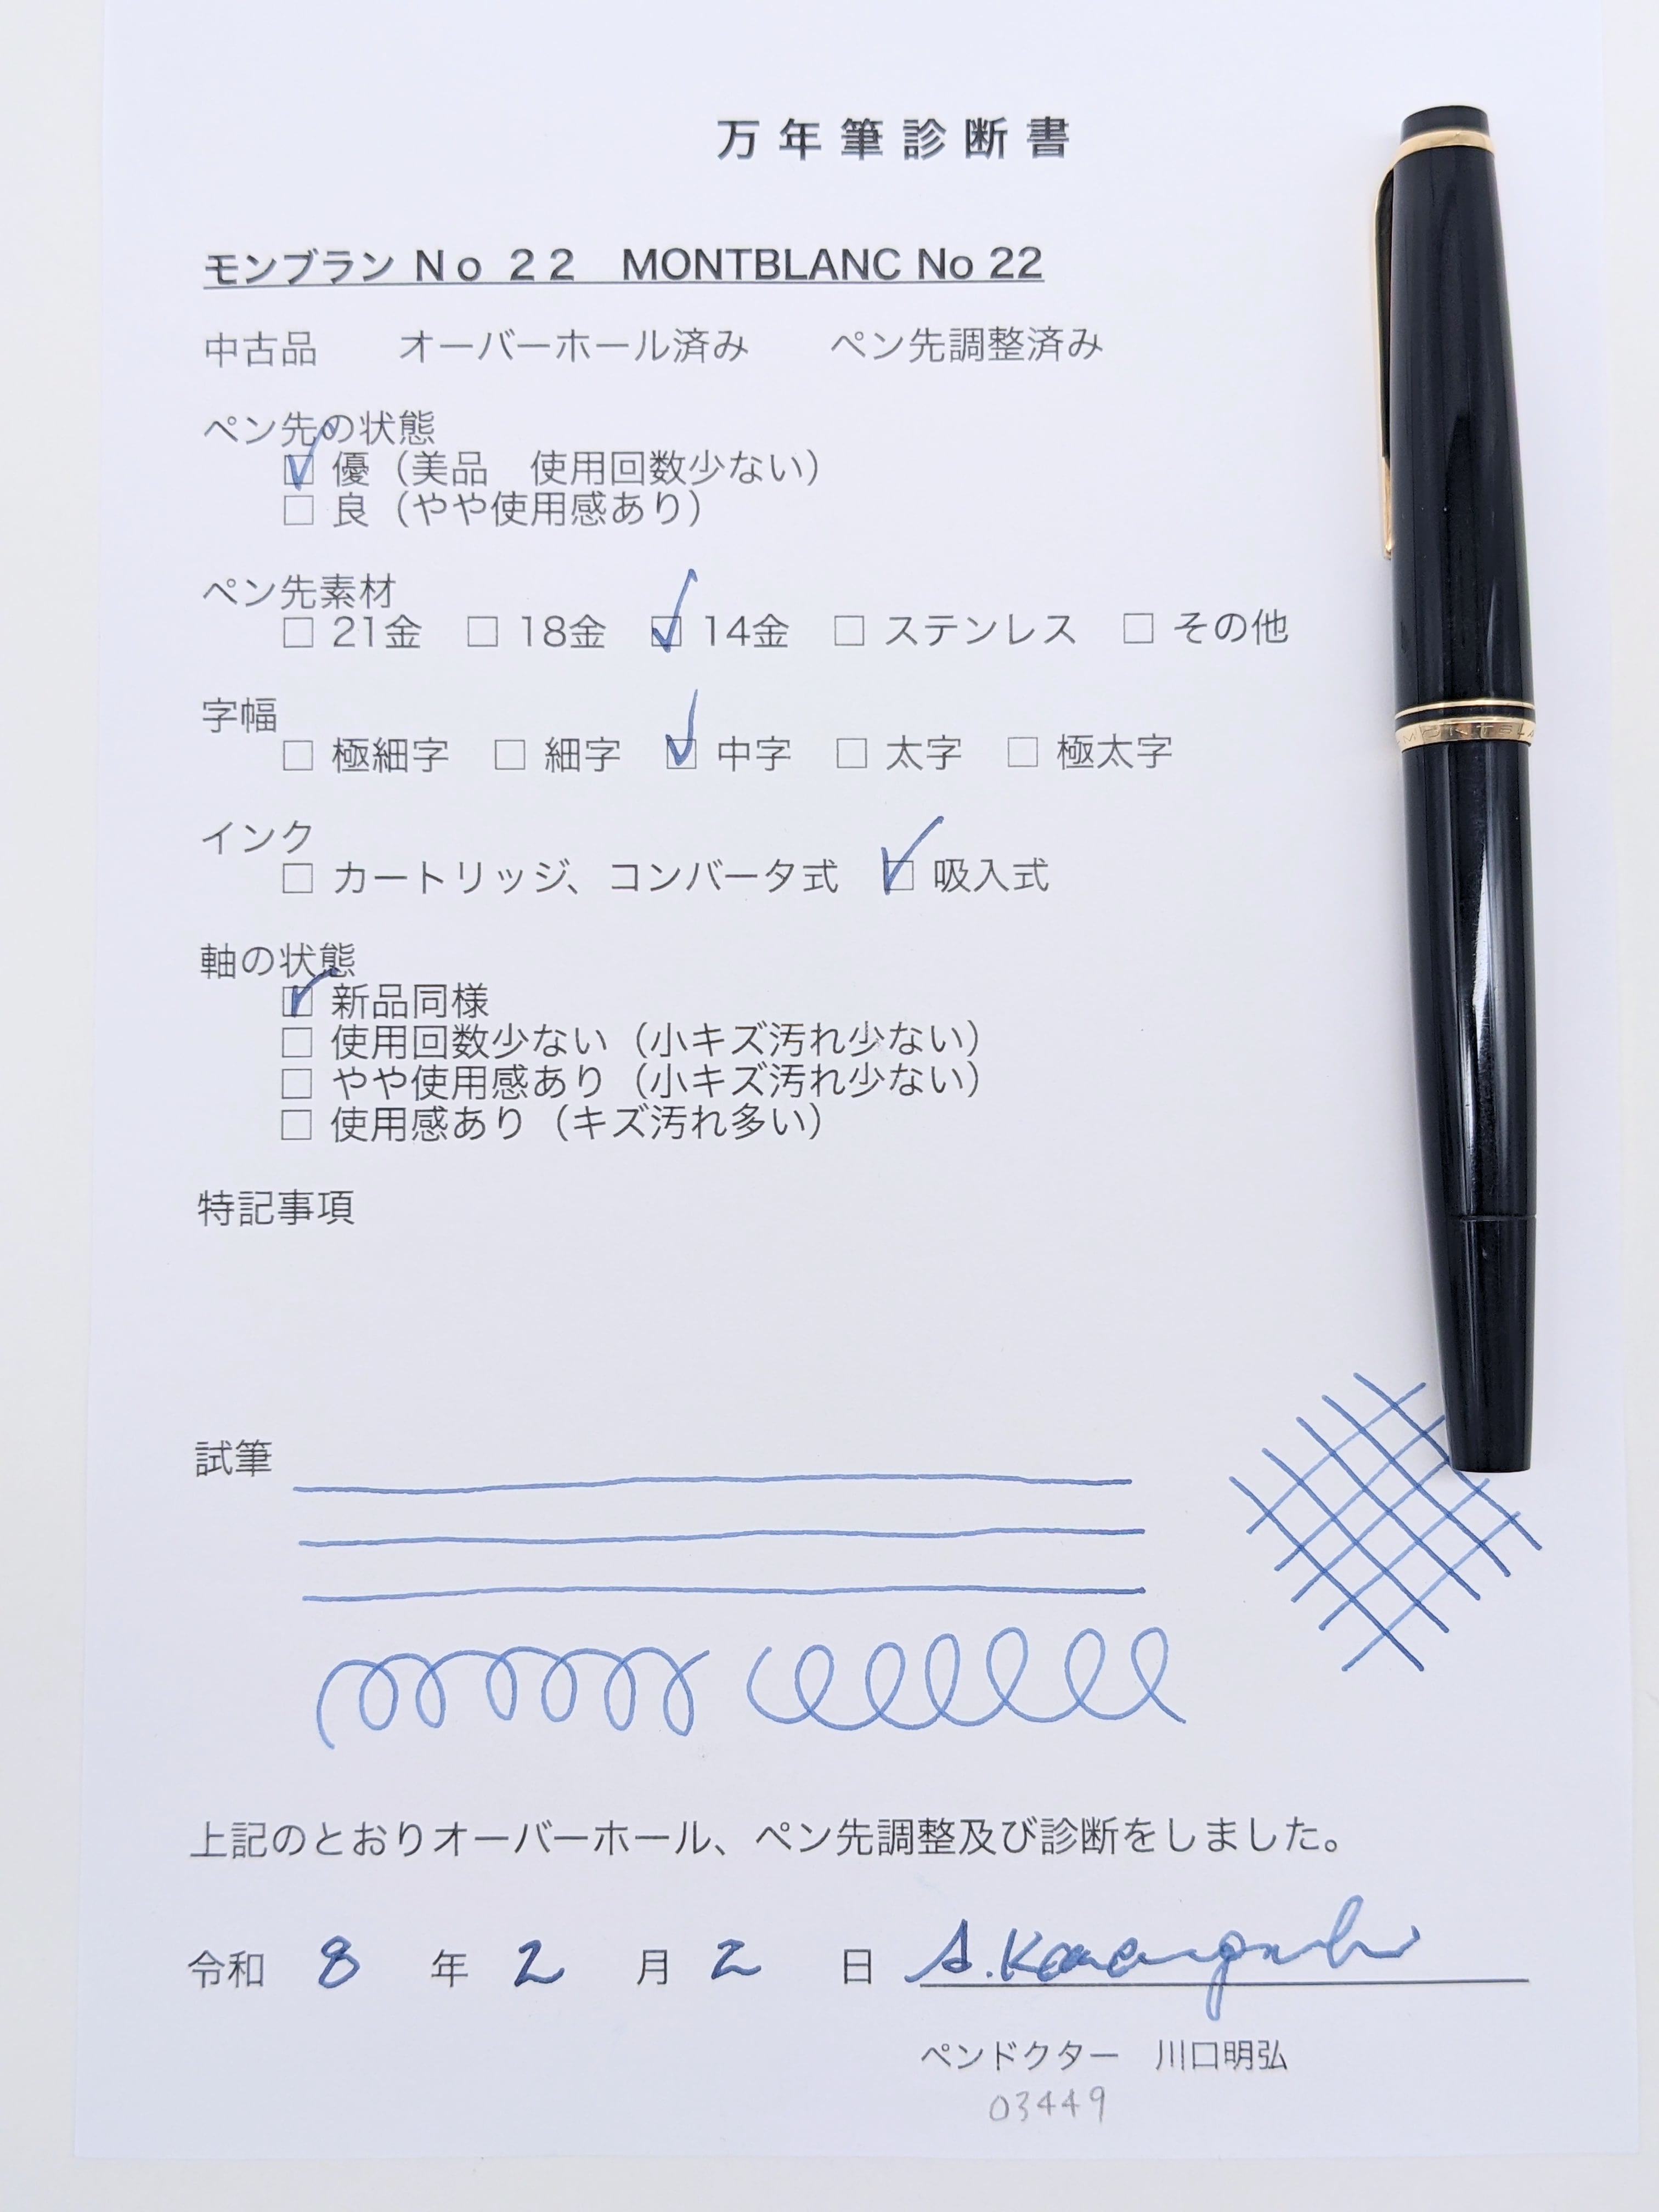 万年筆診断書
モンブラン Ｎｏ ２２　MONTBLANC No 22
中古品　　オーバーホール済み　　ペン先調整済み
ペン先の状態
☑ 優（美品　使用回数少ない）
□ 良（やや使用感あり）
ペン先素材
□ 21金　□ 18金　☑ 14金　□ ステンレス　□ その他
字幅
□ 極細字　□ 細字　☑ 中字　□ 太字　□ 極太字
インク
□ カートリッジ、コンバータ式　☑ 吸入式
軸の状態
☑ 新品同様
□ 使用回数少ない（小キズ汚れ少ない）
□ やや使用感あり（小キズ汚れ少ない）
□ 使用感あり（キズ汚れ多い）
特記事項
試筆
上記のとおりオーバーホール、ペン先調整及び診断をしました。
令和 8 年 2 月 2 日 A.Kawaguchi
ペンドクター　川口明弘
03449